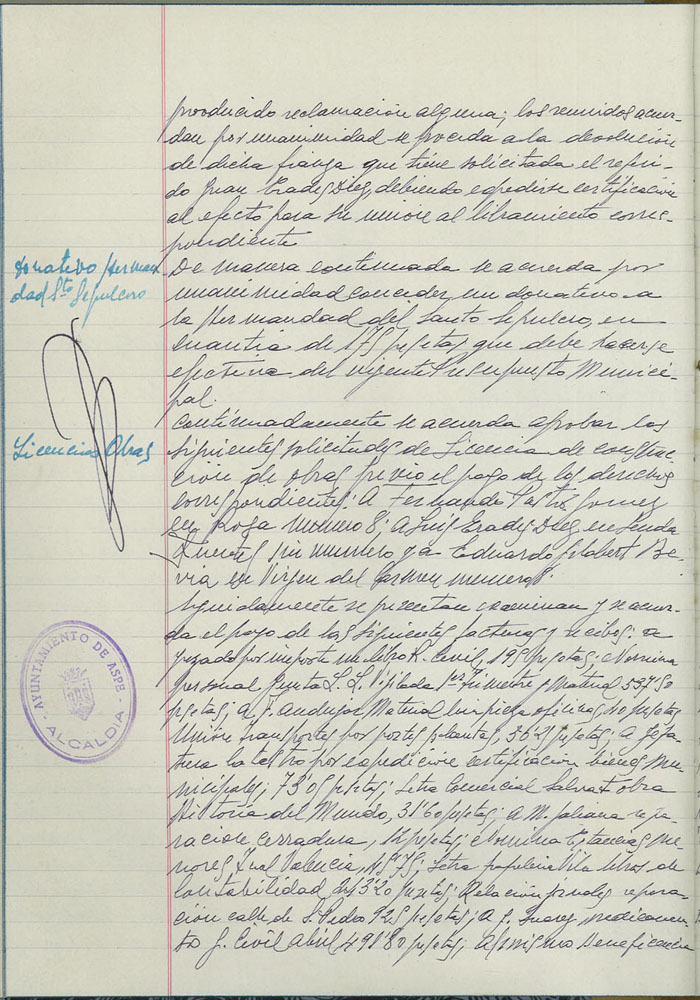 producido reclamación alguna; los reunidos acuer-
dan por unanimidad se proceda a la devolución
de dicha fianza que tiene solicitada el referi-
do Juan Erades Diez, debiendo expedirse certificación
al efecto para su unión al libramiento corres-
pondiente.
donativo Herman
dad Sto Sepulcro
De manera continuada se acuerda por
unanimidad conceder un donativo a
la Hermandad del Santo Sepulcro, en
cuantía de 175 pesetas que debe hacerse
efectiva del vigente Presupuesto Munici-
pal.
Licencias Obras
Continuadamente se acuerda aprobar las
siguientes solicitudes de Licencia de construc-
ción de obras previo el pago de los derechos
correspondientes: A Fernando Pastor Gomez
en Rosa número 8; a Luis Erades Diez en senda
Fuentes sin número y a Eduardo Gilabert Be-
via en Virgen del Carmen número
Seguidamente se presentan examinan y se acuer-
da el pago de las siguientes facturas y recibos: a
Juzgado por importe un libro R. Civil, 195 pesetas; Nomina
personal Junta L. 1er Trimestre y Material 537'50
pesetas; a F. Andujar Material limpieza oficinas, pesetas
Unión transportes por portes plantas, 56'25 pesetas; a Jefa-
tura Catastro por expedición certificación bienes mu-
nicipales; 73'05 pesetas; Letra Comercial Salvat obra
Historia del Mundo, 3160 pesetas; a M. Galiana repa-
ración cerradura, 12 pesetas; Nomina Estancias Me-
nores Tral Valencia, Letra papeleria Vila libros de
contabilidad de 1320 pesetas; Relación jornales repara-
ción calle de S. Pedro 925 pesetas; a J. Suarez, medicamen-
to G. Civil Abril 491'80 pesetas; al mismo Beneficencia
AYUNTAMIENTO DE ASPE
ALCALDIA